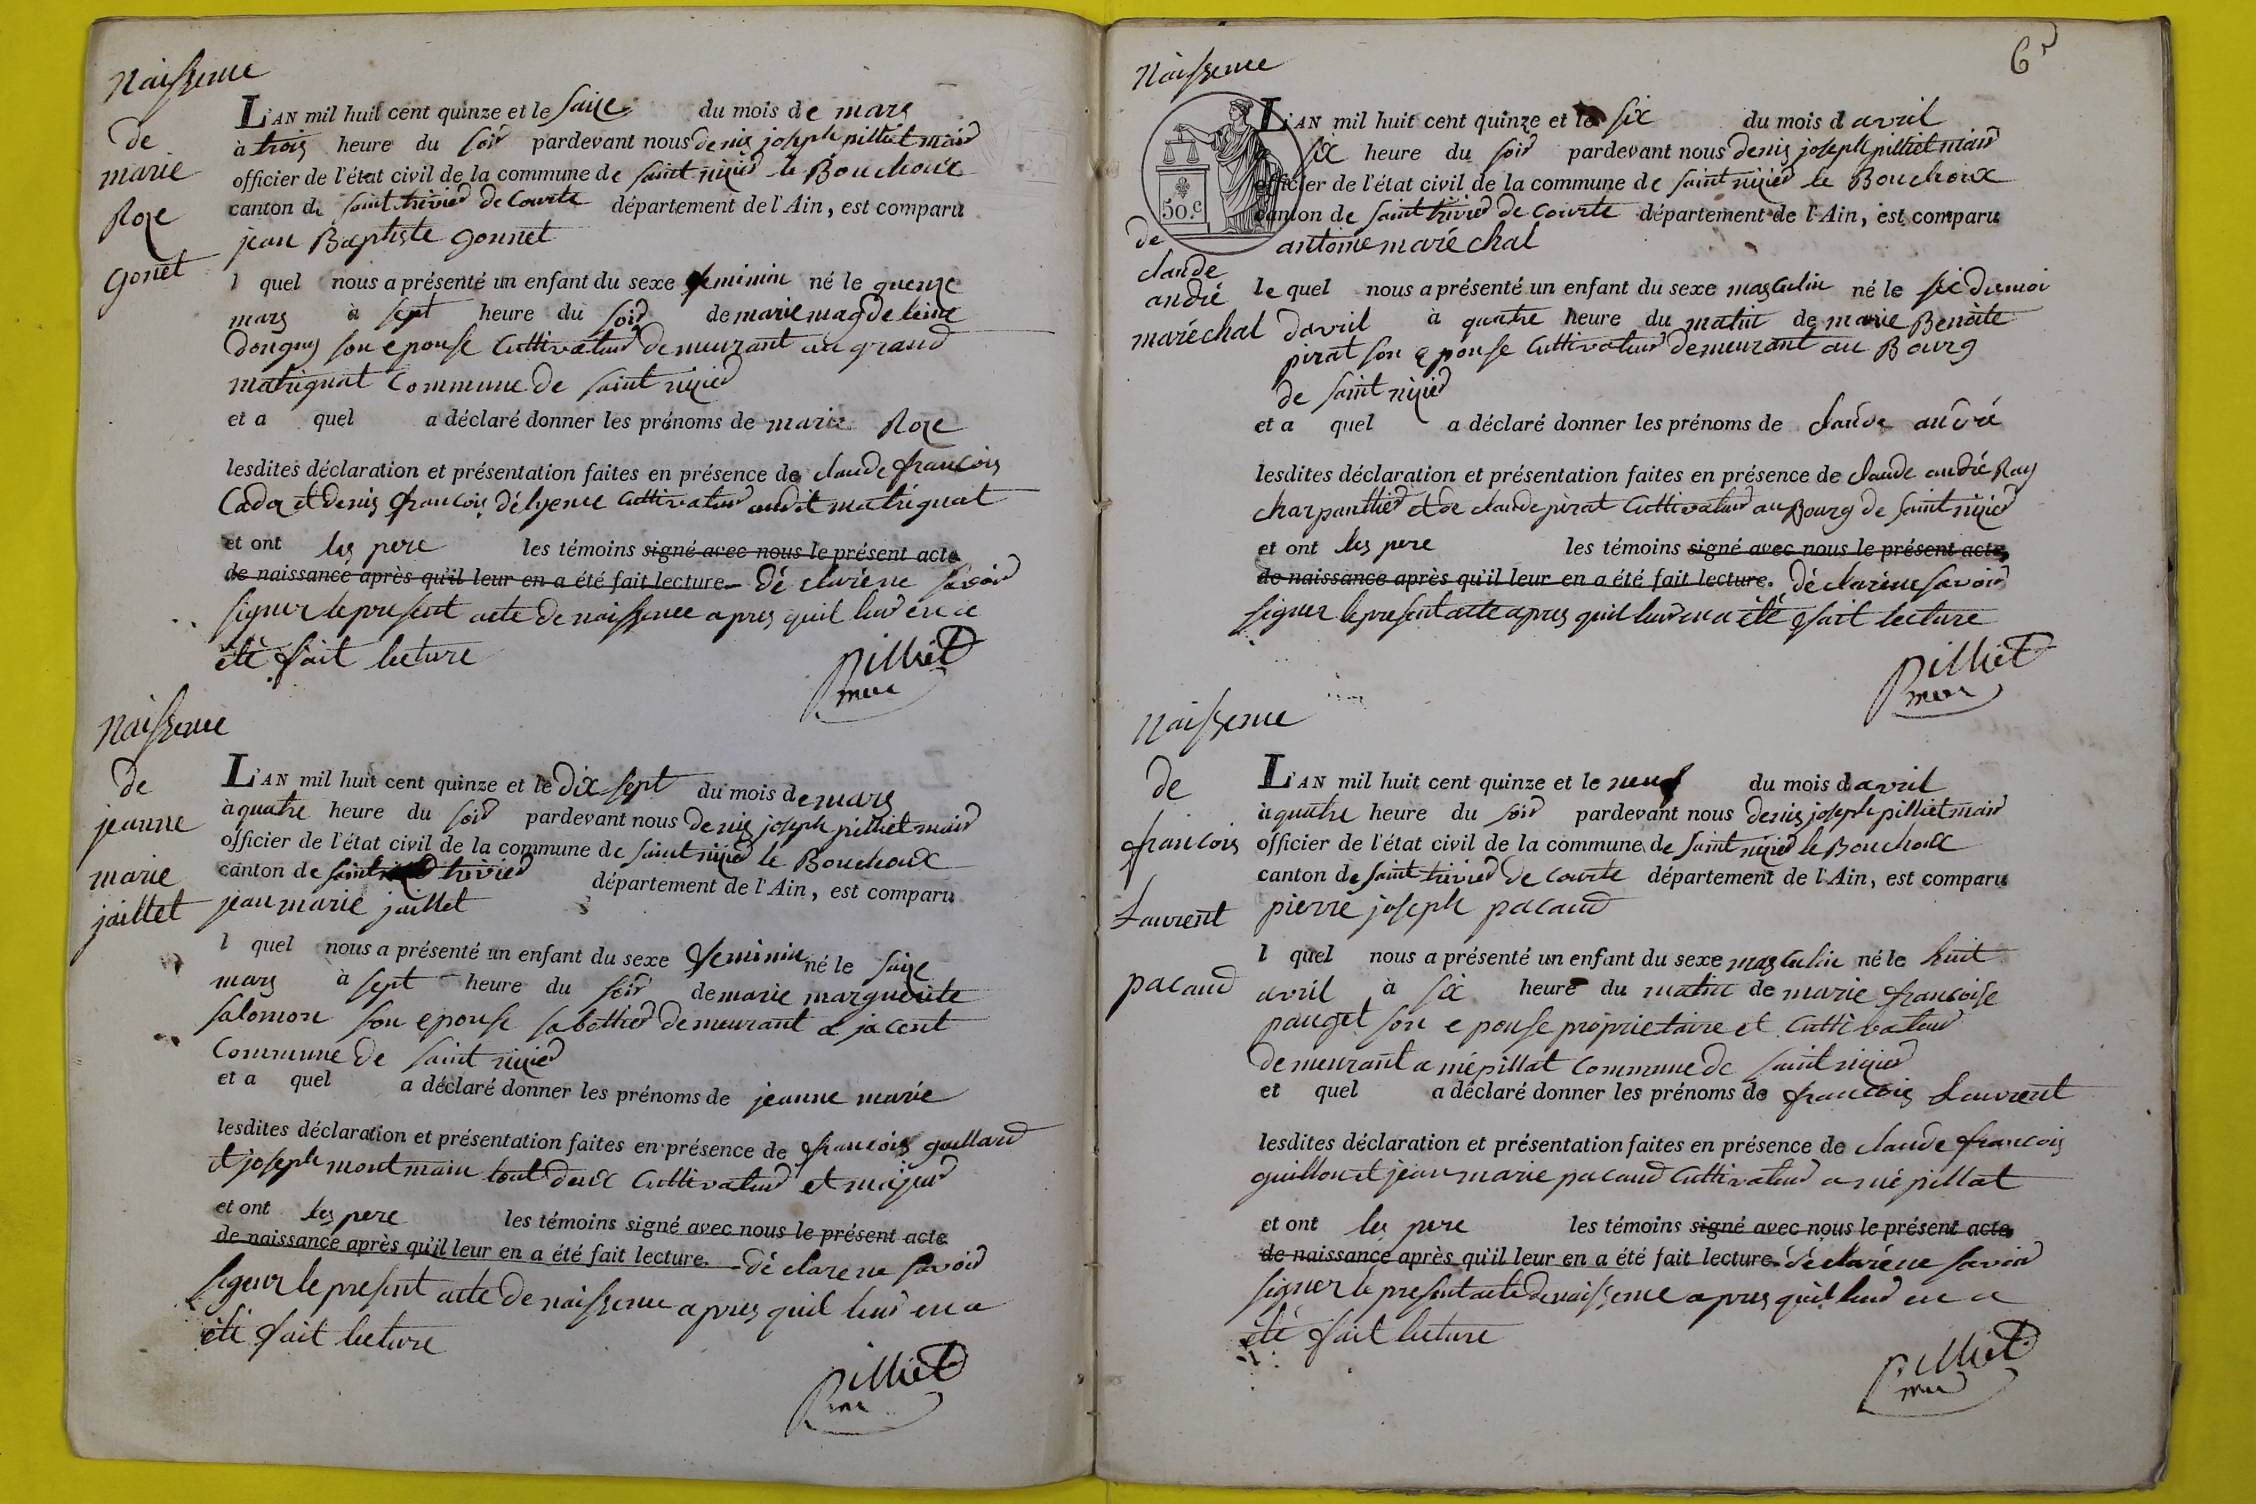 Naissence
de
marie
Roze
gonet
L'AN mil huit cent quinze et le saize du mois de mars
à trois heure du soir pardevant nous denis joseph pilliet mair
officier de l'état civil de la commune de saint nizier le Bouchoux
canton de saint trivier de Courte département de l'Ain, est comparu
jean Baptiste gonnet
l quel nous a présenté un enfant du sexe feminin né le quenze
mars à sept heure du soir de marie magdeleine
son epouse Cultivateur demeurant au grand
matrignat Commune de saint nizier
et a quel a déclaré donner les prénoms de marie Roze
lesdites déclaration et présentation faites en présence de claude francois
Cadoz et denis francois délyence Cultivateur audit matrignat
et ont les pere les témoins signé avec nous le présent acte
de naissance après qu'il leur en a été fait lecture. déclaréne savoir
signer le present acte de naissence apres quil leur en a
été fait lecture
Pilliet
mere
Naissence
de
jeanne
marie
jaillet
L'AN mil huit cent quinze et le dix sept du mois de mars
à quatre heure du soir pardevant nous denis joseph pilliet mair
officier de l'état civil de la commune de saint nizier le Bouchoux
canton de saint trivier département de l'Ain, est comparu
jean marie jaillet
l quel nous a présenté un enfant du sexe feminin né le saize
mars à sept heure du soir de marie marguerite
salomon son epouse sabottier demeurant a jacent
Commune de saint nizier
et a quel a déclaré donner les prénoms de jeanne marie
lesdites déclaration et présentation faites en présence de francois gaillard
et joseph montmain tout deux Cultivateur et majeur
et ont les pere les témoins signé avec nous le présent acte
de naissance après qu'il leur en a été fait lecture. déclarene savoir
signer le present acte de naissence apres quil leur en a
été fait lecture
Pilliet
mere
6
Naissence
50.c
de
claude
andré
maréchal
L'AN mil huit cent quinze et le six du mois d avril
six heure du soir pardevant nous denis joseph pilliet mair
officier de l'état civil de la commune de saint nizier le Bouchoux
canton de saint trivier de Courte département de l'Ain, est comparu
antoine maréchal
le quel nous a présenté un enfant du sexe masculin né le six dumoi
davril à quatre heure du matin de marie Benoite
pirat son epouse Cultivateur demeurant au Bourg
de saint nizier
et a quel a déclaré donner les prénoms de claude andré
lesdites déclaration et présentation faites en présence de claude andré Ray
charpanthier et de claude pirat Cultivateur au Bourg de saint nizier
et ont les pere les témoins signé avec nous le présent acte
de naissance après qu'il leur en a été fait lecture. déclaréne savoir
signer le present acte apres quil leur en a été fait lecture
Pilliet
mere
Naissence
de
francois
Laurent
pacaud
L'AN mil huit cent quinze et le neuf du mois d avril
à quatre heure du soir pardevant nous denis joseph pilliet mair
officier de l'état civil de la commune de saint nizier le Bouchoux
canton de saint trivier de Courte département de l'Ain, est comparu
pierre joseph pacaud
l quel nous a présenté un enfant du sexe masculin né le huit
avril à six heure du matin de marie francoise
pauget son epouse proprietaire et Cultivateur
demeurant a mépillat Commune de saint nizier
et quel a déclaré donner les prénoms de francois Laurent
lesdites déclaration et présentation faites en présence de claude francois
guillon et jean marie pacaud Cultivateur a mépillat
et ont les pere les témoins signé avec nous le présent acte
de naissance après qu'il leur en a été fait lecture. déclaréne savoir
signer le present acte de naissence apres quil leur en a
été fait lecture
Pilliet
mere